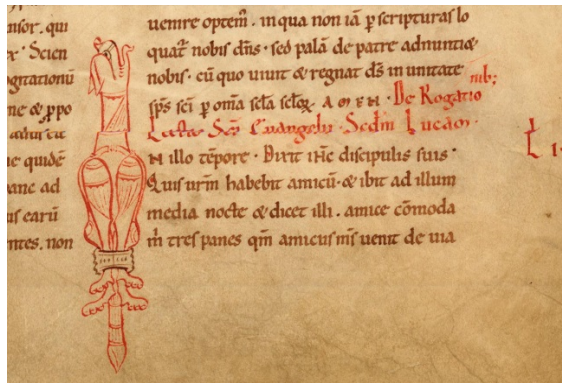 nsor. qui
Scien
ogitationū
ne & ꝓpo
ne quidē
anc ad
us earū
ntes. non
uenire optem̄. in qua non iā ꝑ scripturas lo
quat᷑ nobis dn̄s · sed palā de patre adnuntiæ
nobis · cū quo uiuit & regnat ds̄ in unitate
sp̄s sc̄i ꝑ om̄ia sc̄la sclo᷑ꝝ · A M E N · De Rogatio nib;
Lectio Sc̄i Euangelii · Scdm̄ Lucam ·
N illo tēpore · Dixit iħc discipulis suis ·
Quis urm̄ habebit amicū · & ibit ad illum
media nocte & dicet illi · amice cōmoda
m̄ tres panes qm̄ amicus ms̄ uenit de uia